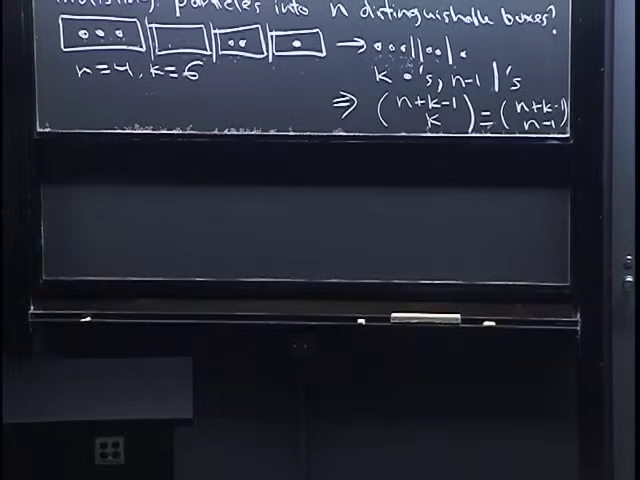 particles into n distinguishable boxes?
→ ∘∘∘||∘∘|∘
n=4, k=6
k ∘'s, n-1 |'s
⇒ (n+k-1 k) = (n+k-1 n-1)